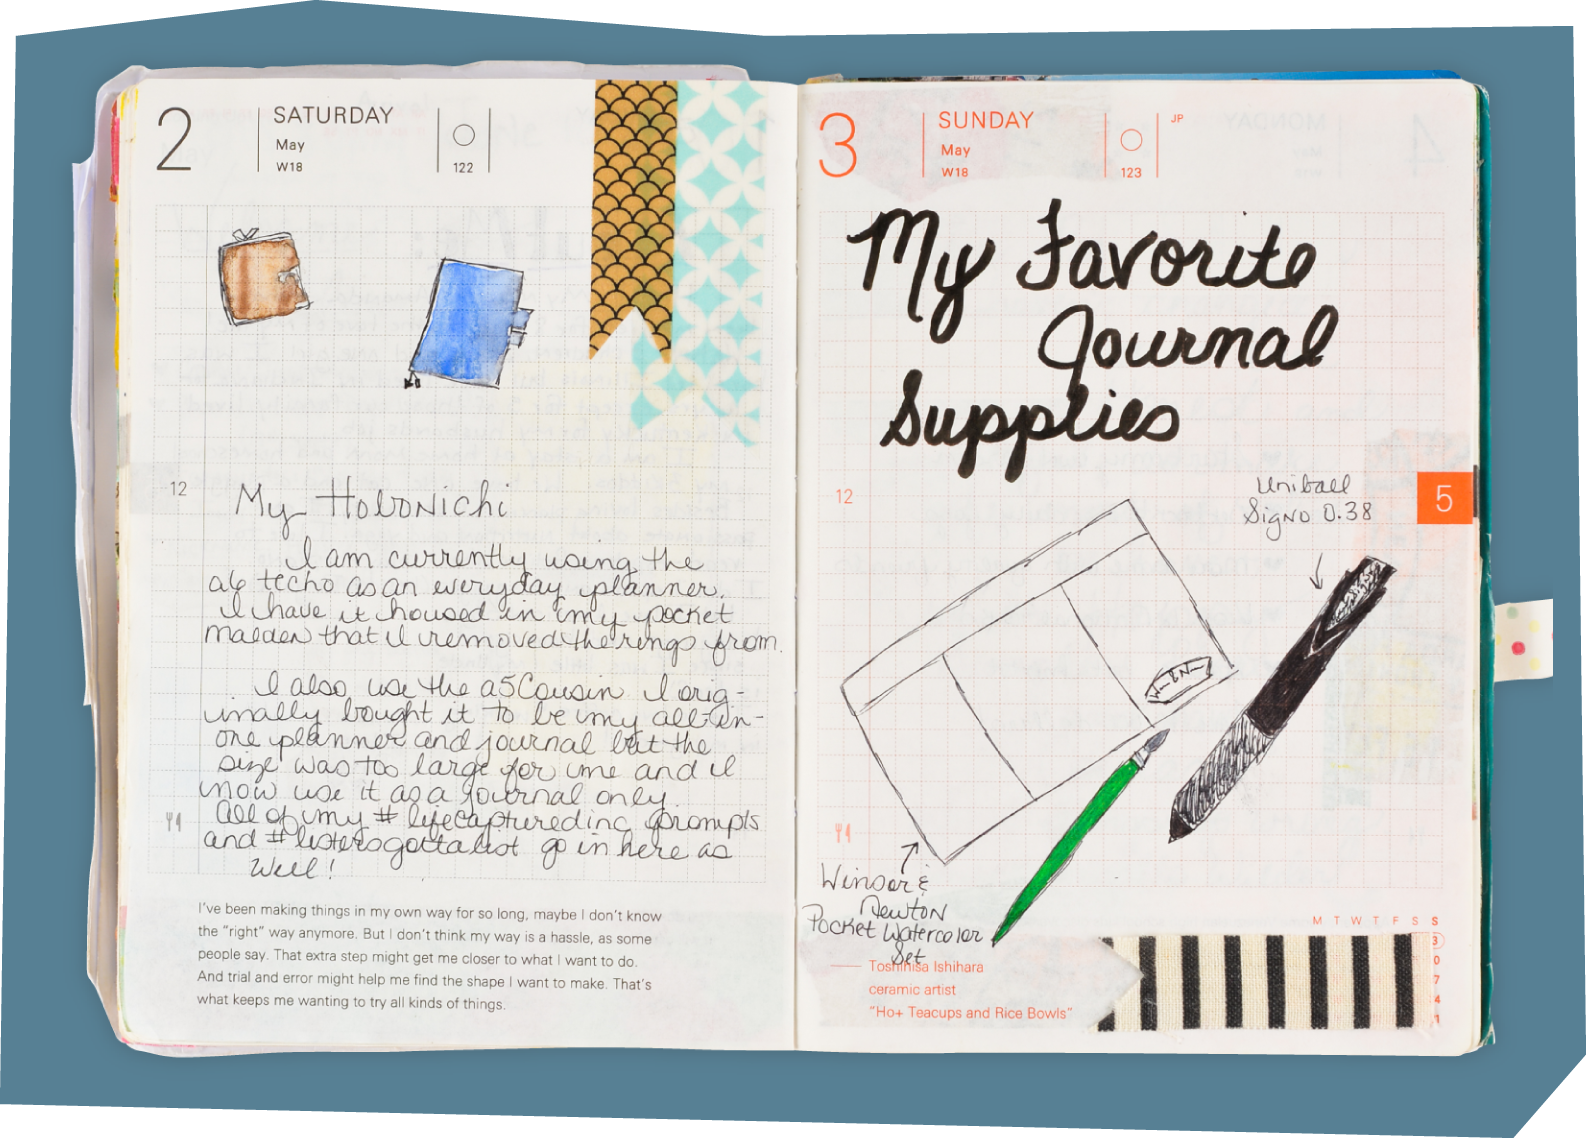 2
SATURDAY
May
W18
122
My Hobonichi
I am currently using the
a6 techo as an everyday planner.
I have it housed in my pocket
maiden that I removed the rings from.
I also use the a5 Cousin I orig-
inally bought it to be my all-in-
one planner and journal but the
size was too large for me and I
now use it as a journal only.
All of my #lifecapturedinc prompts
and #listersgottalist go in here as
well!
12
I've been making things in my own way for so long, maybe I don't know
the "right" way anymore. But I don't think my way is a hassle, as some
people say. That extra step might get me closer to what I want to do.
And trial and error might help me find the shape I want to make. That's
what keeps me wanting to try all kinds of things.
3
SUNDAY
May
W18
123
JP
My Favorite
Journal
Supplies
12
Uniball
Signo 0.38
5
W-N-
Winsor &
Newton
Pocket Watercolor
Set
M T W T F S S
3
0
7
4
1
Toshihisa Ishihara
ceramic artist
"Ho+ Teacups and Rice Bowls"